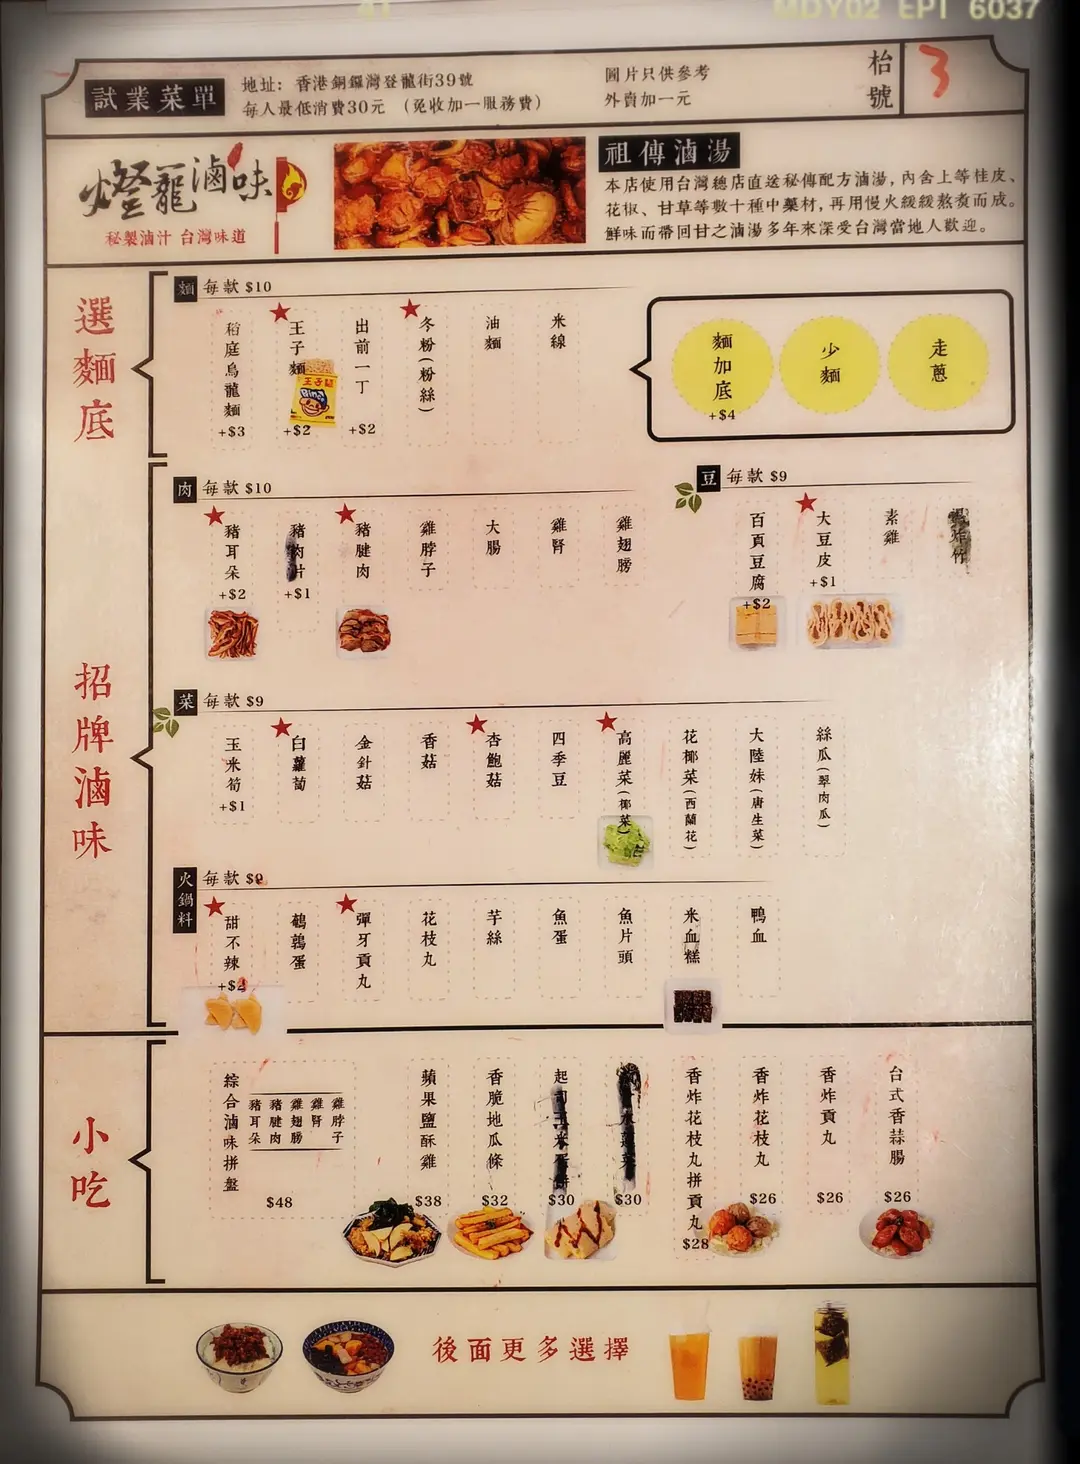 MDY02 EPT 6037
試業菜單
地址：香港銅鑼灣登龍街39號
每人最低消費30元（免收加一服務費）
圖片只供參考
外賣加一元
枱號
3
燈籠滷味
秘製滷汁 台灣味道
祖傳滷湯
本店使用台灣總店直送秘傳配方滷湯，內含上等桂皮、
花椒、甘草等數十種中藥材，再用慢火緩緩熬煮而成。
鮮味而帶回甘之滷湯多年來深受台灣當地人歡迎。
選麵底
麵 每款 $10
稻庭烏龍麵 +$3
王子麵 +$2
王子麵
出前一丁 +$2
冬粉（粉絲）
油麵
米線
麵加底 +$4
少麵
走蔥
招牌滷味
肉 每款 $10
豬耳朵 +$2
豬肉片 +$1
豬腱肉
雞脖子
大腸
雞腎
雞翅膀
豆 每款 $9
百頁豆腐 +$2
大豆皮 +$1
素雞
炸竹
菜 每款 $9
玉米筍 +$1
白蘿蔔
金針菇
香菇
杏鮑菇
四季豆
高麗菜（椰菜）
花椰菜（西蘭花）
大陸妹（唐生菜）
絲瓜（翠肉瓜）
火鍋料 每款 $9
甜不辣 +$2
鵪鶉蛋
彈牙貢丸
花枝丸
芋絲
魚蛋
魚片頭
米血糕
鴨血
小吃
綜合滷味拼盤
豬耳朵
豬腱肉
雞翅膀
雞腎
雞脖子
$48
蘋果鹽酥雞 $38
香脆地瓜條 $32
起司玉米蛋餅 $30
$30
香炸花枝丸拼貢丸 $28
香炸花枝丸 $26
香炸貢丸 $26
台式香蒜腸 $26
後面更多選擇